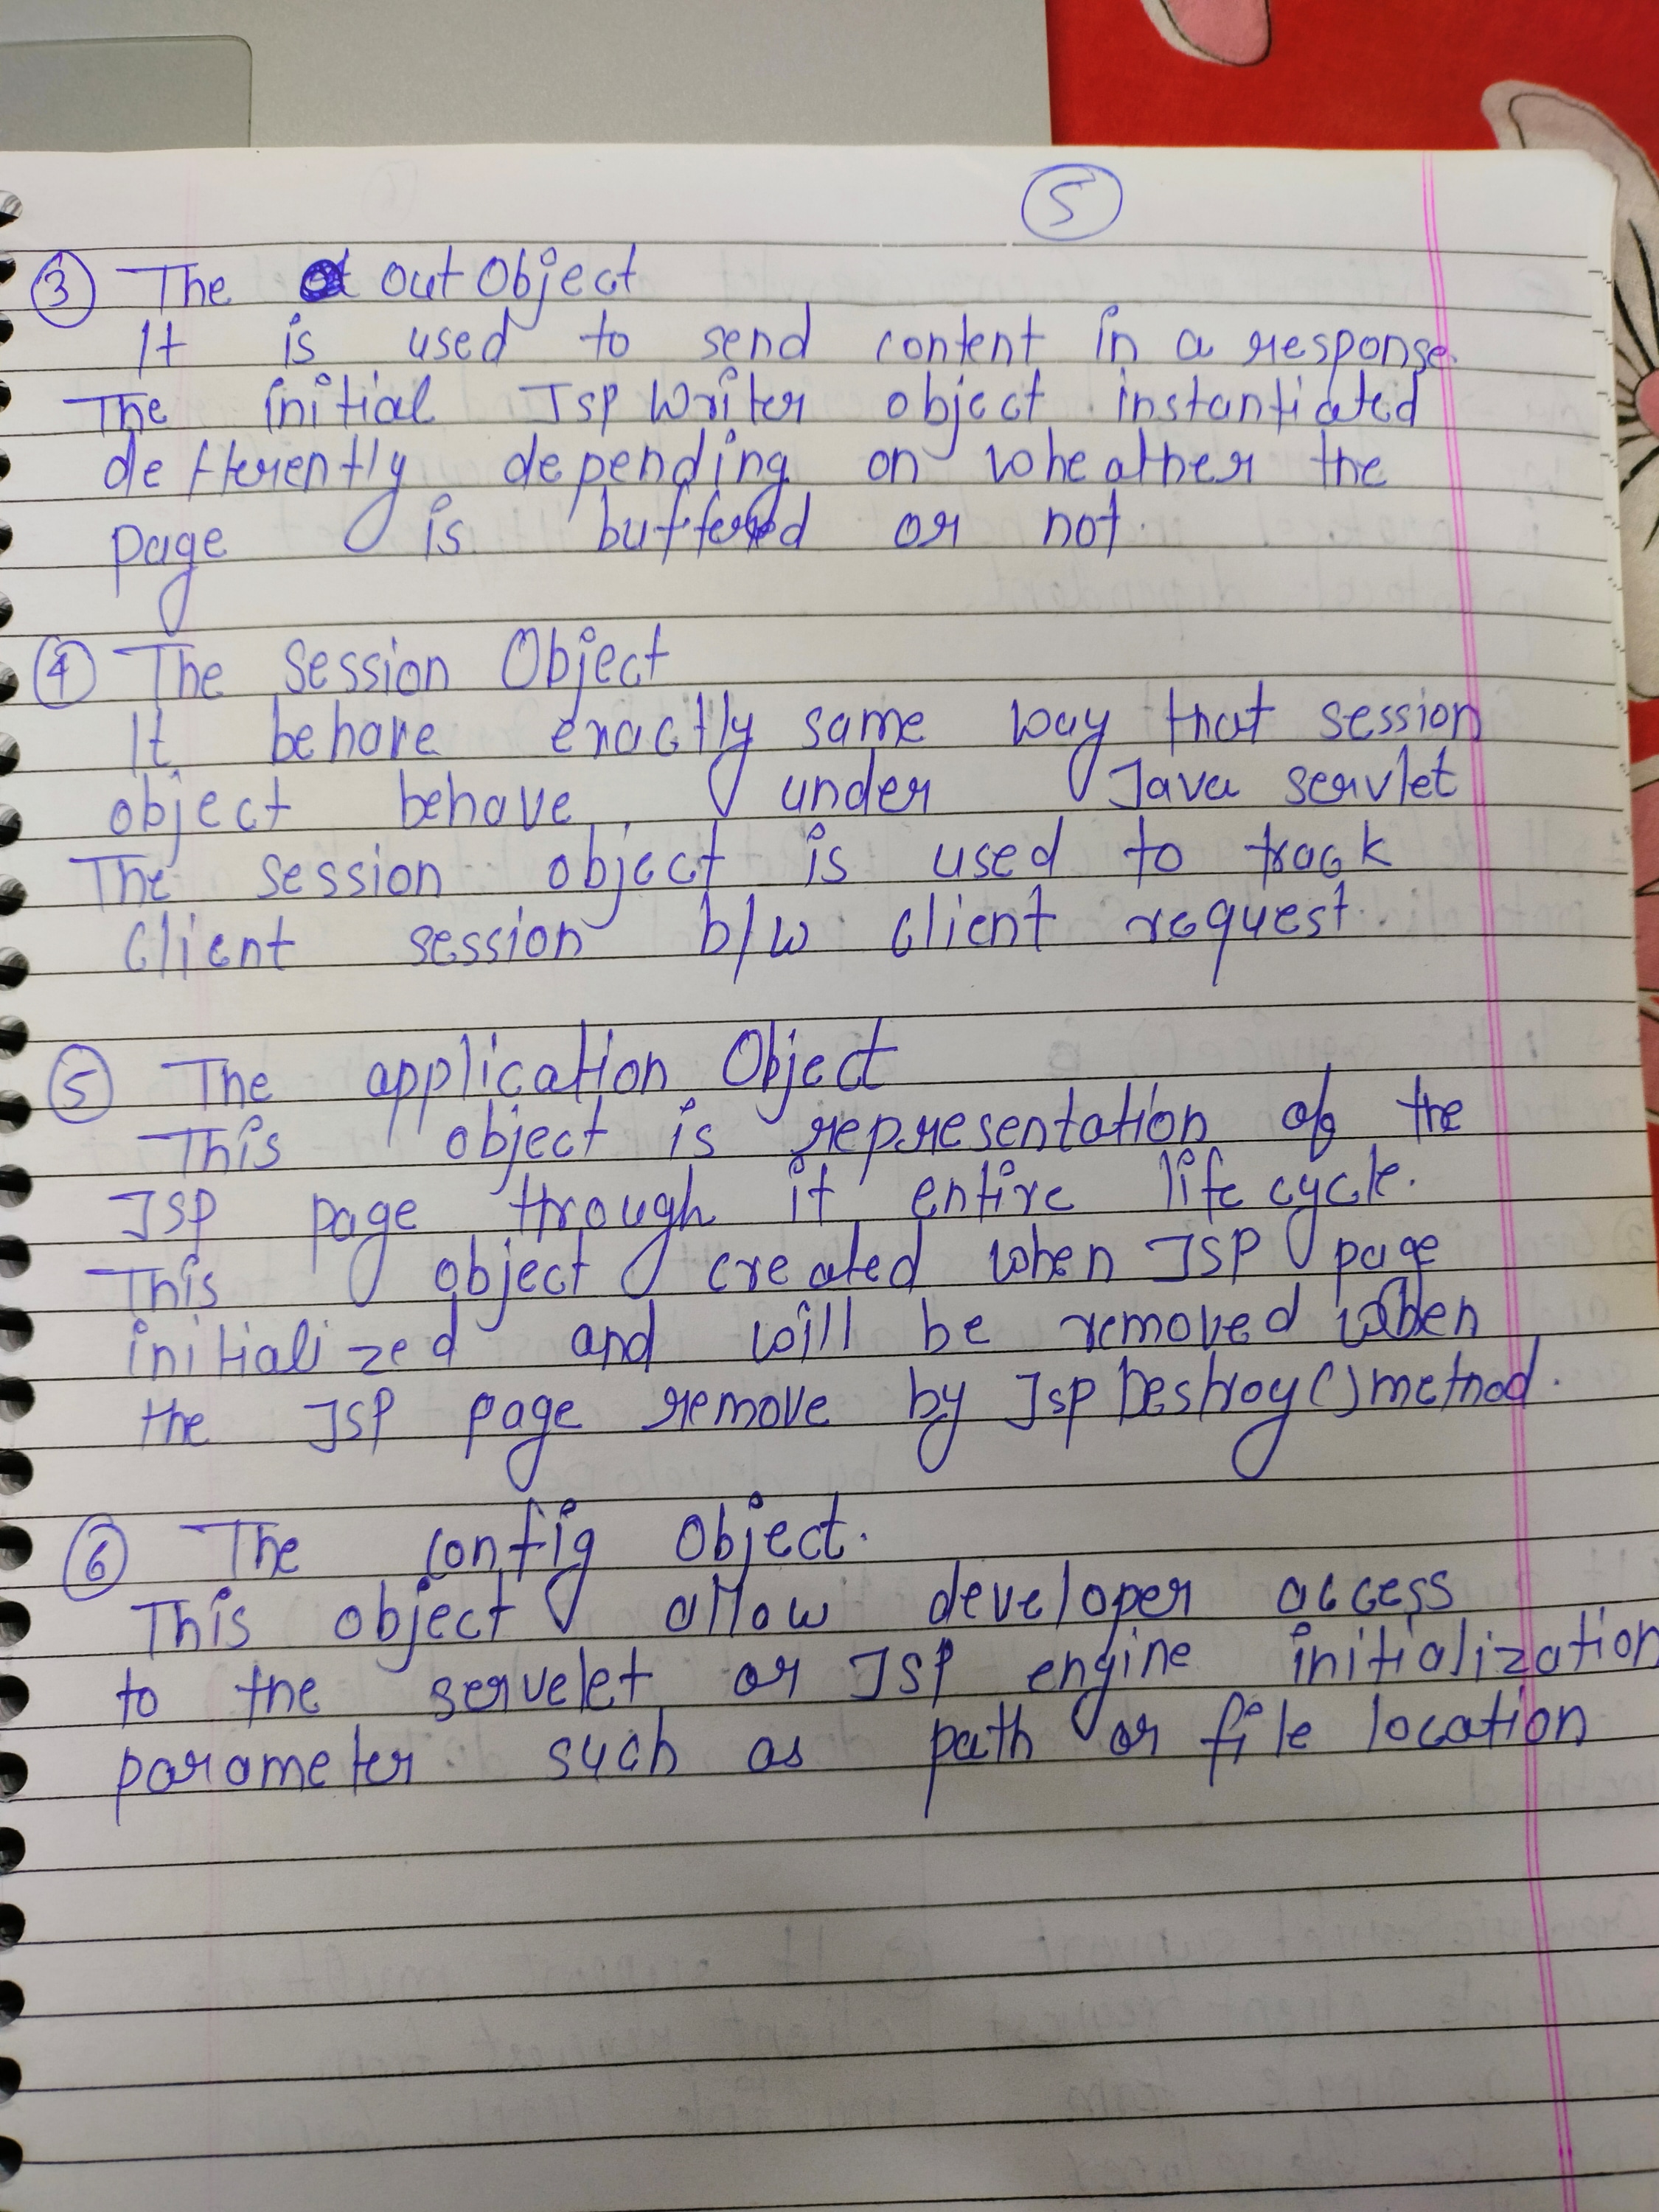 5
3 The out Object
It is used to send content in a response.
The initial JSP Writer object instantiated
defferently depending on wheather the
page is buffered or not.
4 The Session Object
It behave exactly same way that session
object behave under Java servlet
The session object is used to track
Client session b/w client request.
5 The application Object
This object is representation of the
JSP page through it entire life cycle.
This object created when JSP page
initialized and will be removed when
the JSP page remove by Jsp Destroy() method.
6 The config Object.
This object allow developer access
to the servelet or JSP engine initialization
parameter such as path or file location